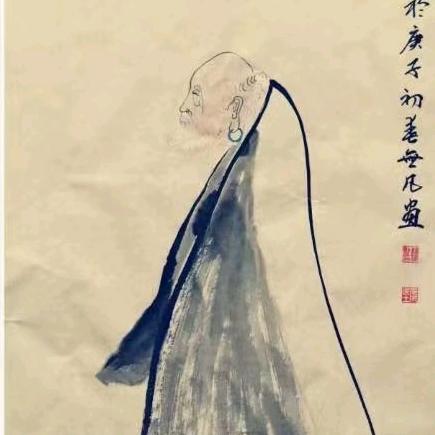 於庚子初春無凡畫